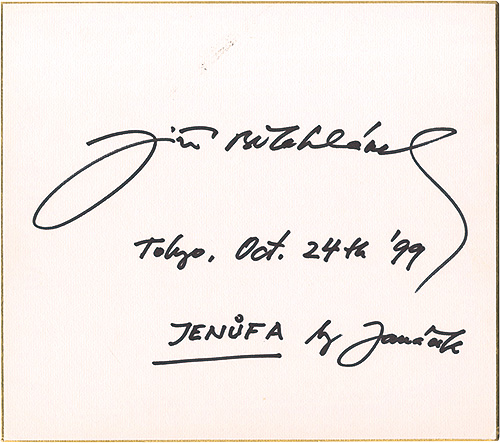 Jiří Bělohlávek
Tokyo, Oct. 24th '99
JENŮFA by Janáček